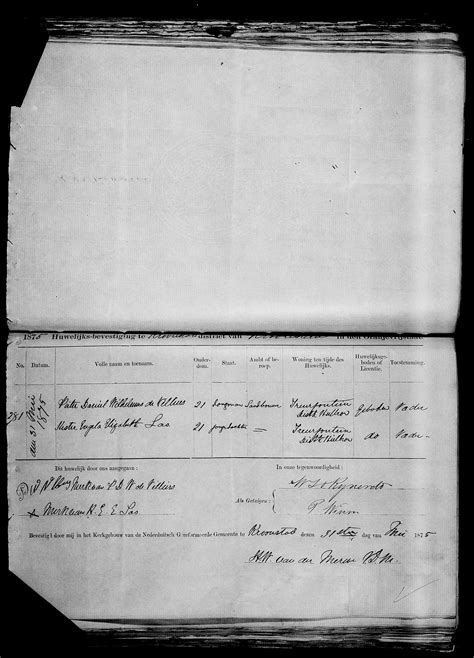 1875 Huwelijks-bevestiging te Kroonstad district van Kroonstad in den Oranjevrijstaat
No. Datum. Volle naam en toenaam. Ouderdom. Staat. Ambt of beroep. Woning ten tijde des Huwelijks. Huwelijksgeboden of Licentie. Toestemming.
281 den 31 Mei 1875
Pieter Daniel Wilhelmus de Villiers 21 Jongman Landbouwer Treurfontein Geboden Vader
Hester Engela Elizabeth Las 21 Treurfontein do Vader
Dit huwelijk door ons aangegaan: In onze tegenwoordigheid:
Merk van P. D. W. de Villiers
Als Getuigen:
x Merk van H. E. E. Las
Bevestigd door mij in het Kerkgebouw van de Nederduitsch Gereformeerde Gemeente te Kroonstad dezen 31sten dag van Mei 1875
van der Merwe